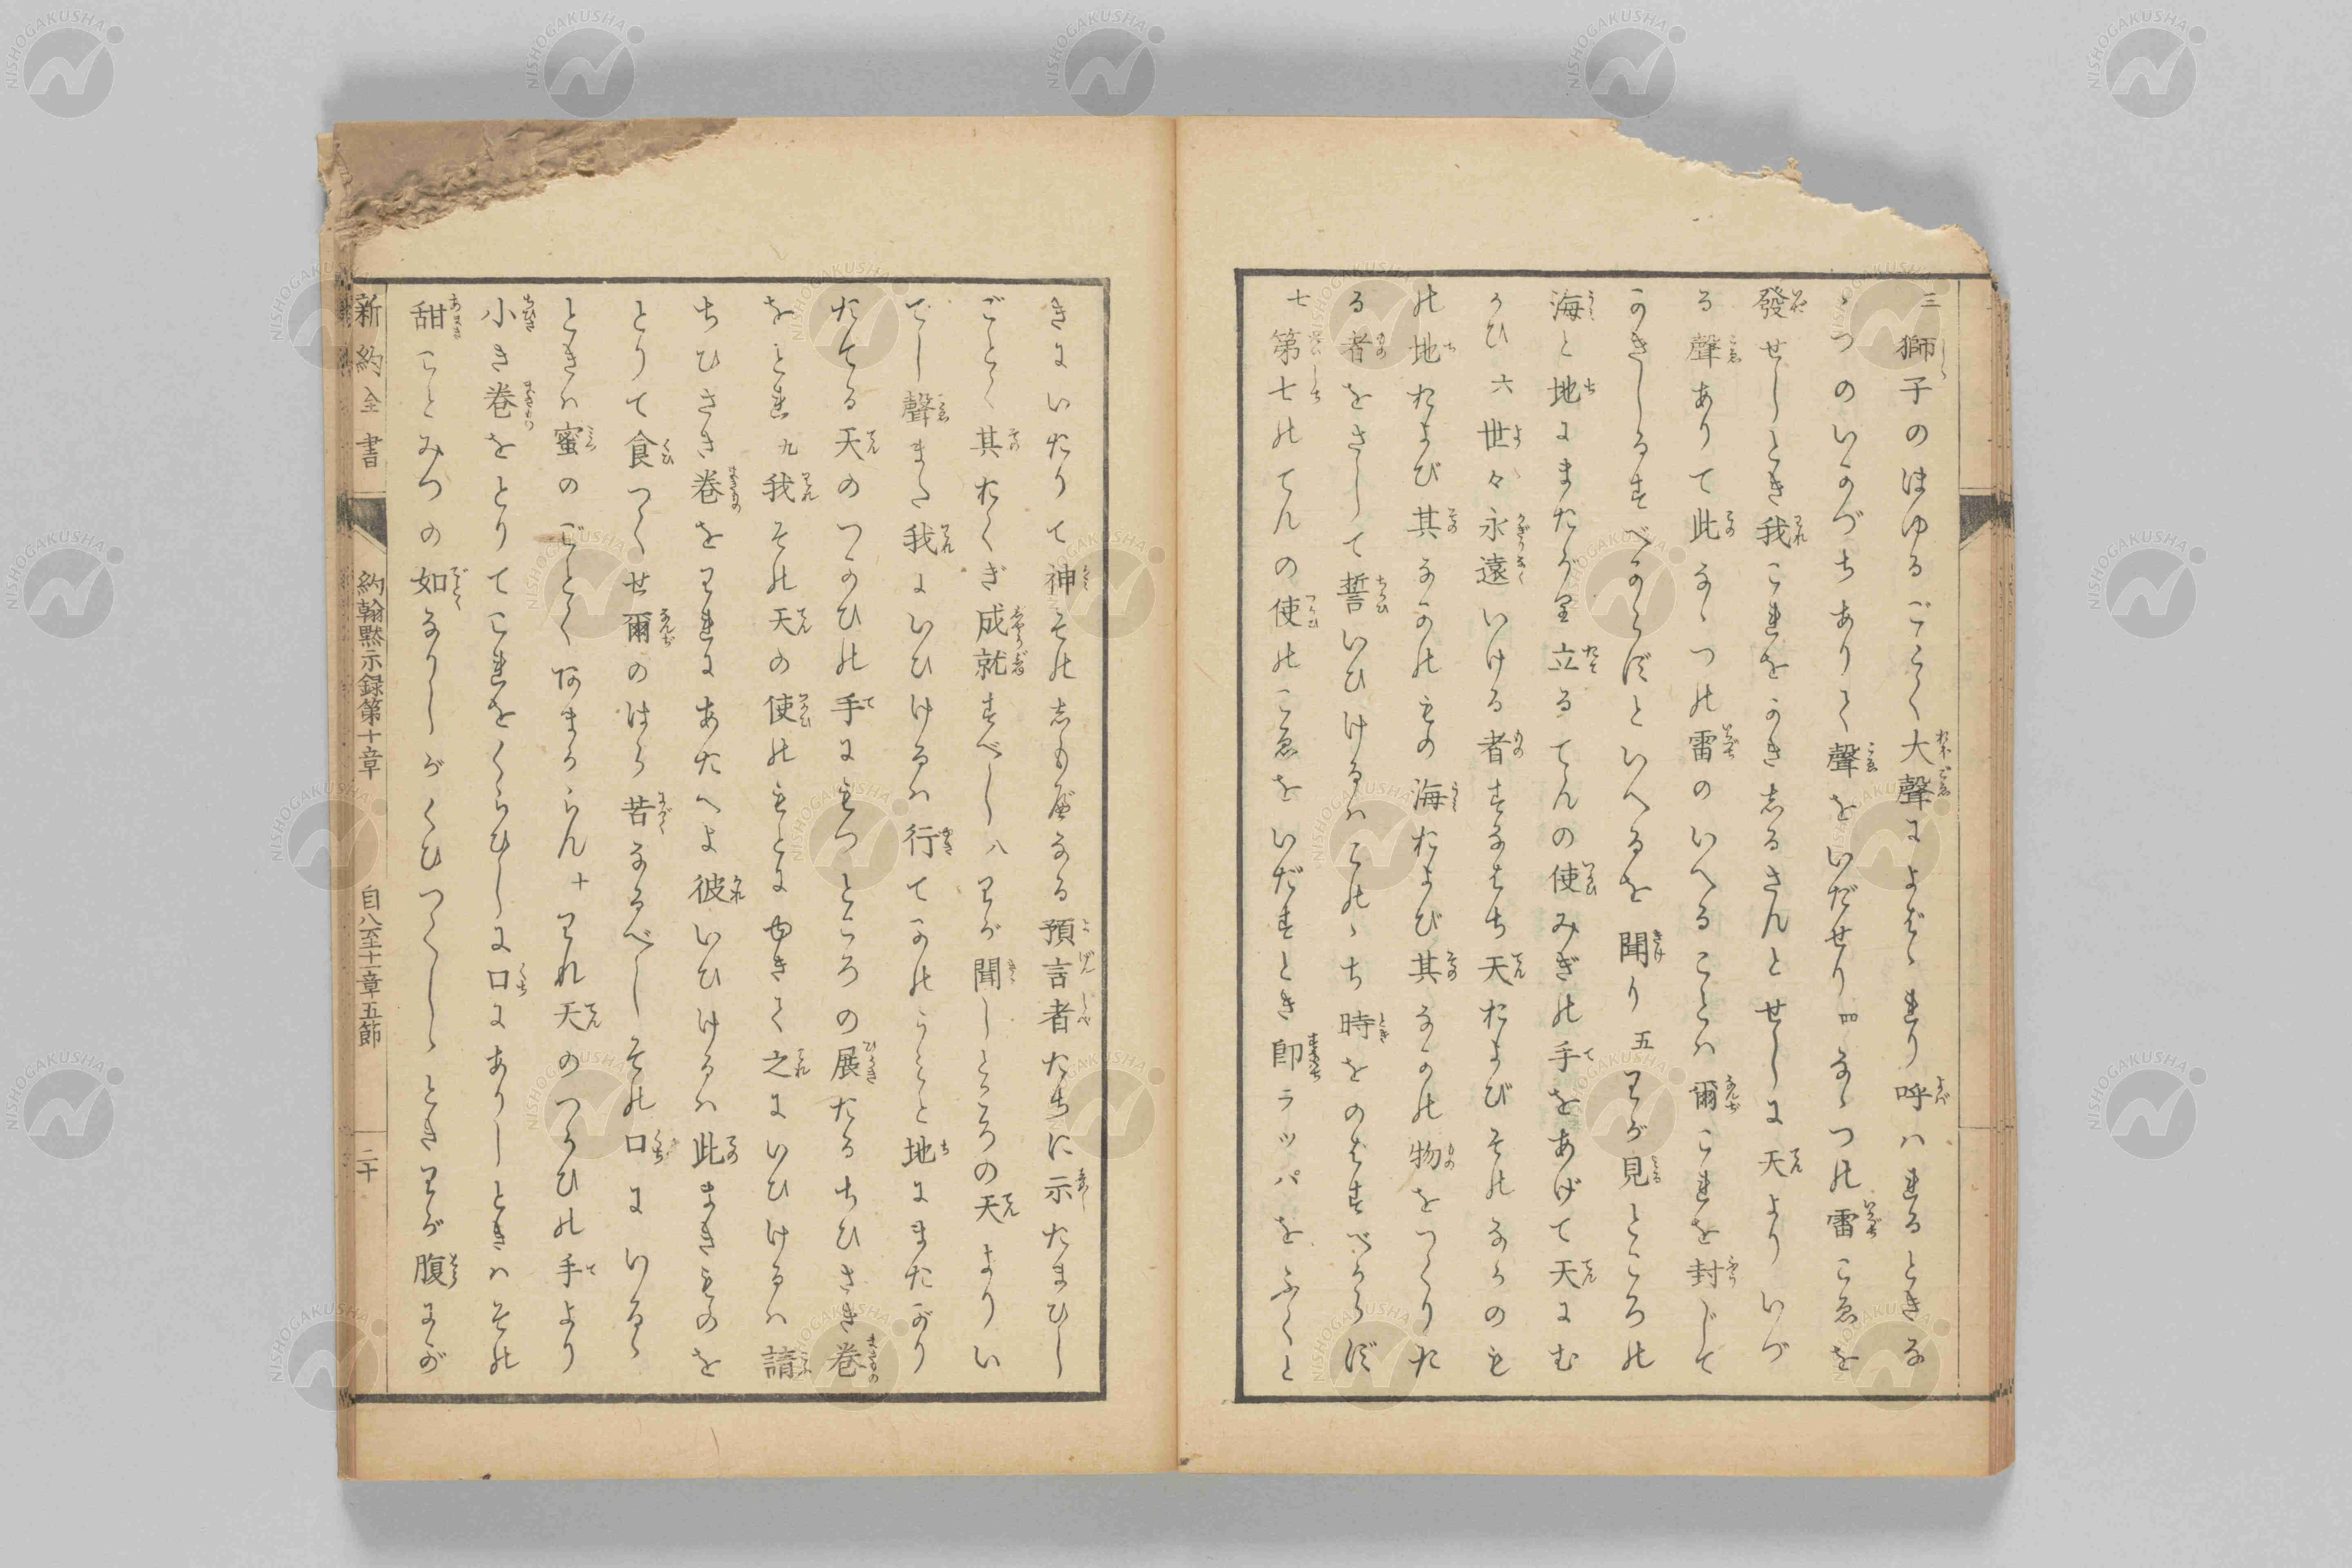 三獅子のほゆるごとく大聲によばゝれり呼ハれるときな
ゝつのいかづちありて聲をいだせり四なゝつの雷こゑを
發せしとき我これをかきしるさんとせしに天よりいづ
る聲ありて此なゝつの雷のいへることハ爾これを封じて
かきしるすべからずといへるを聞り五わが見ところの
海と地にまたがり立るてんの使みぎの手をあげて天にむ
かひ六世々永遠いける者すなはち天およびそのなかのも
の地および其なかのもの海および其なかの物をつくりた
る者をさして誓いひけるハこのゝち時をのばすべからず
七第七のてんの使のこゑをいだすとき即ラッパをふくと
きにいたりて神そのしもべなる預言者たちに示たまひし
ごとく其おくぎ成就すべし八わが聞しところの天よりい
でし聲また我にいひけるハ行てかのうみと地にまたがり
たてる天のつかひの手にもつところの展たるちひさき巻
をとれ九我その天の使のもとにゆきて之にいひけるハ請
ちひさき巻をわれにあたへよ彼いひけるハ此まきものを
とりて食つくせ爾のはら苦なるべしその口にいるゝ
ときハ蜜のごとくあまからん十われ天のつかひの手より
小き巻をとりてこれをくらひしに口にありしときハその
甜ことみつの如なりしがくひつくしゝときわが腹にが
新約全書 約翰黙示録第十章 自八至十一章五節 二十